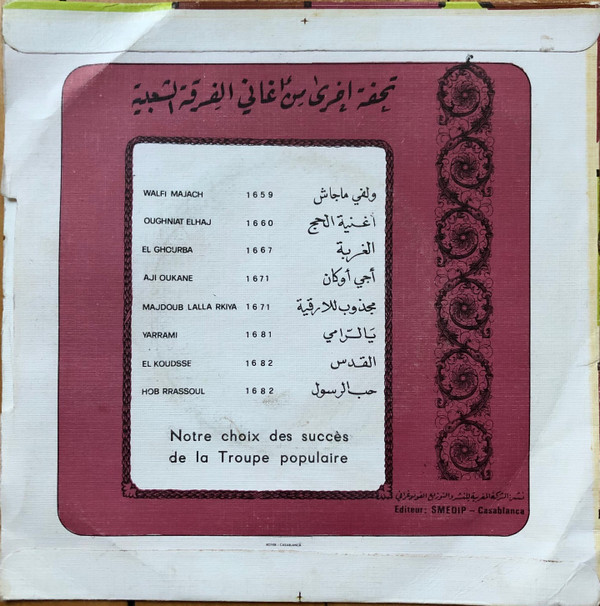 تحفة اخرى من أغاني الفرقة الشعبية
WALFI MAJACH 1659 ولفي ماجاش
OUGHNIAT ELHAJ 1660 أغنية الحج
EL GHOURBA 1667 الغربة
AJI OUKANE 1671 أجي أوكان
MAJDOUB LALLA RKIYA 1671 مجذوب للارقية
YARRAMI 1681 يالرامي
EL KOUDSSE 1682 القدس
HOB RRASSOUL 1682 حب الرسول
Notre choix des succès
de la Troupe populaire
نشر: الشركة المغربية للنشر والتوزيع الفونوغرافي
Editeur: SMEDIP - Casablanca
CASABLANCA